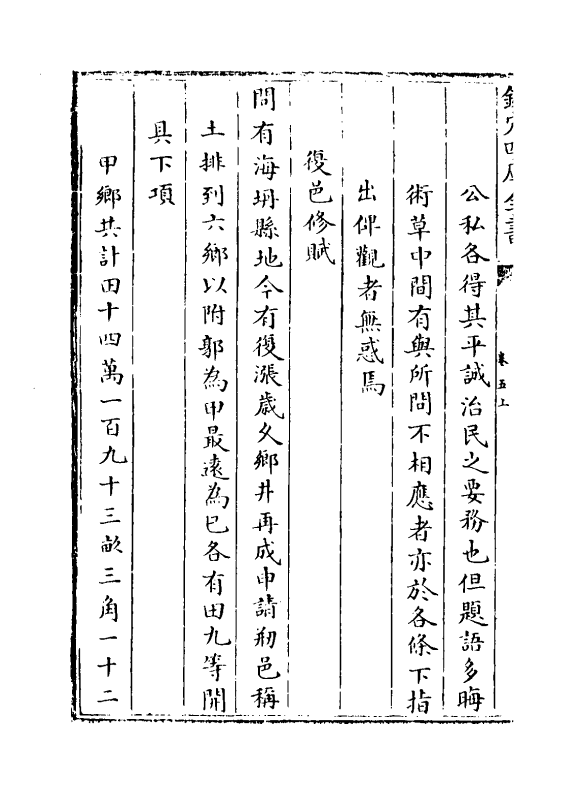 欽定四庫全書
卷五上
公私各得其平誠治民之要務也但題語多晦
術草中間有與所問不相應者亦於各條下指
出俾觀者無惑焉
復邑修賦
問有海坍縣地今有復漲歲久鄉井再成申請剏邑稱
土排列六鄉以附郭為甲最遠為巳各有田九等開
具下項
甲鄉共計田十四萬一百九十三畝三角一十二